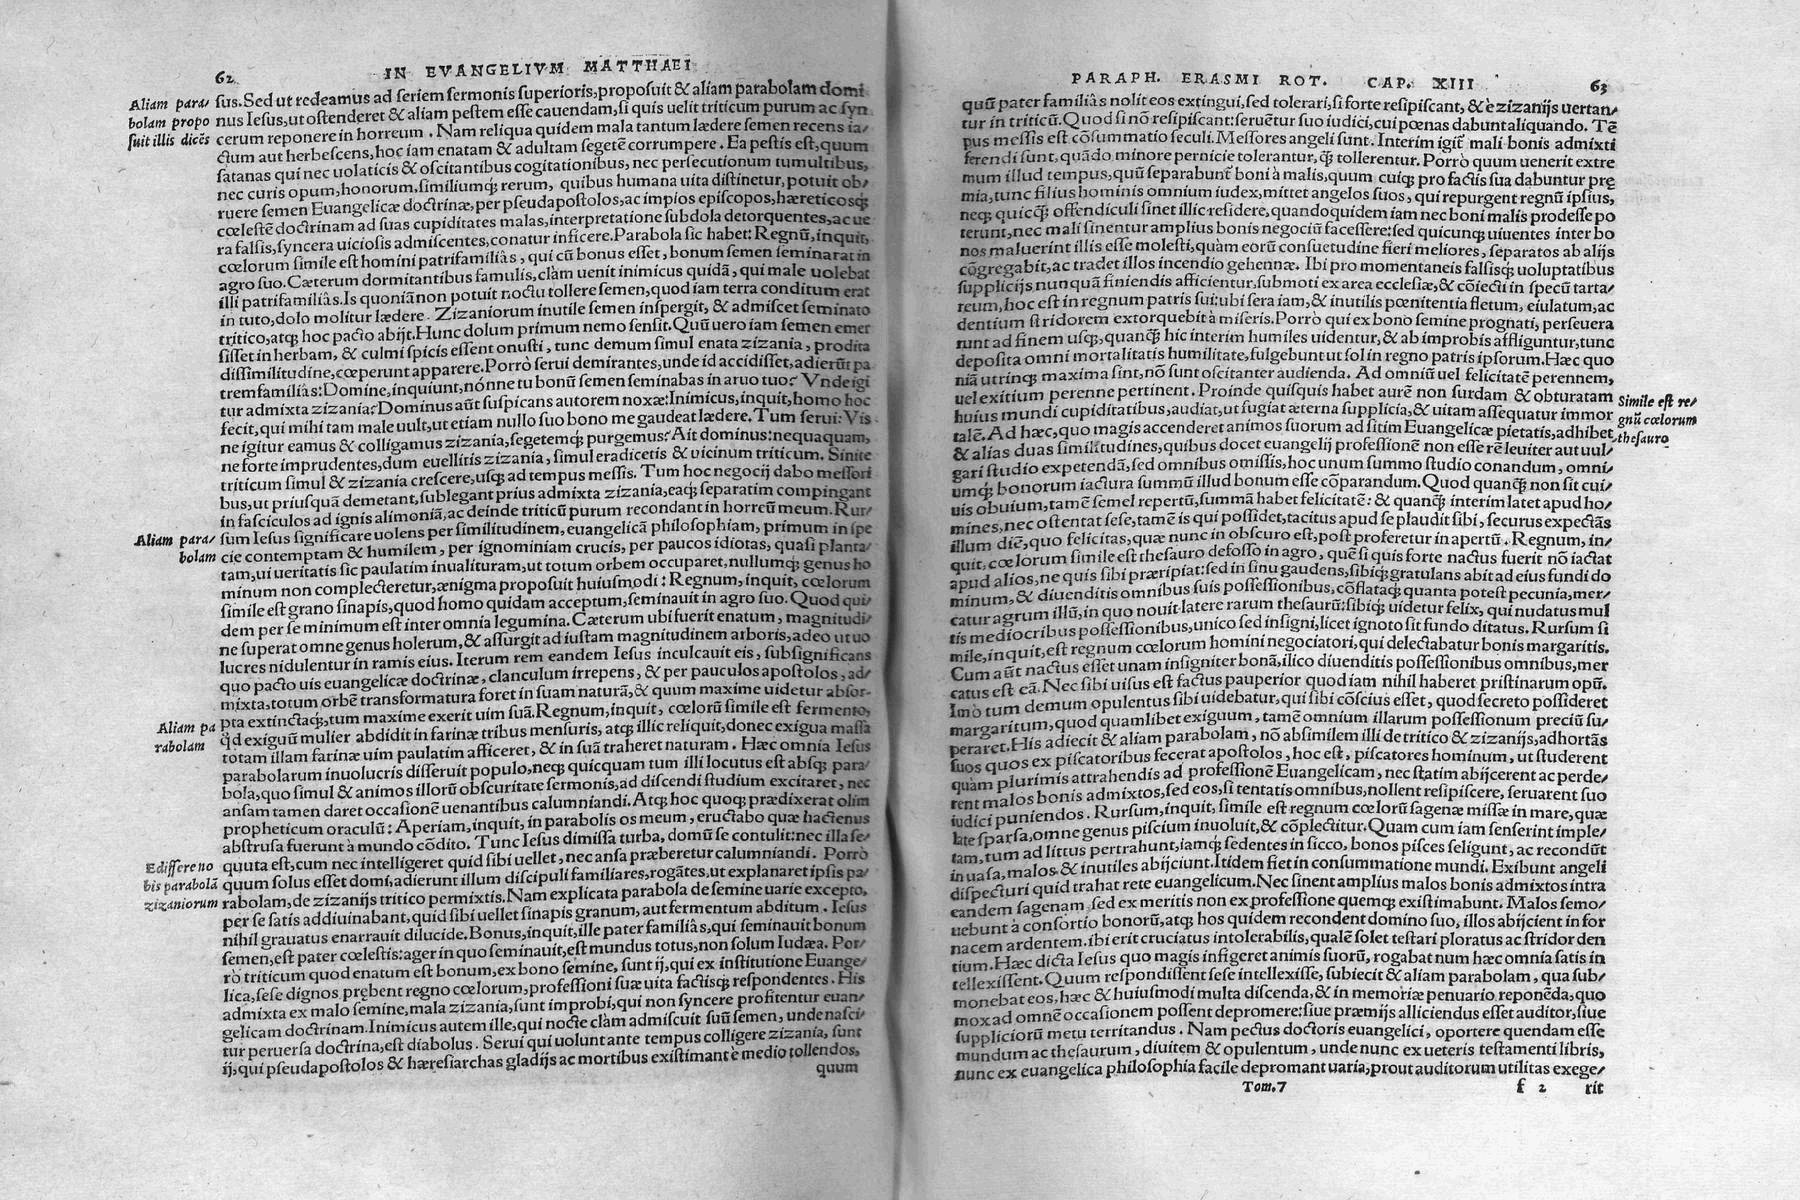 62
IN EVANGELIVM MATTHAEI
Aliam para⸗
bolam propo
suit illis dicēs
ſus. Sed ut redeamus ad ſeriem ſermonis ſuperioris, propoſuit & aliam parabolam domi
nus Ieſus, ut oſtenderet & aliam peſtem eſſe cauendam, ſi quis uelit triticum purum ac ſyn
cerum reponere in horreum. Nam reliqua quidem mala tantum lædere ſemen recens ia⸗
ctum aut herbeſcens, hoc iam enatam & adultam ſegetē corrumpere. Ea peſtis eſt, quum
ſatanas qui nec uolaticis & oſcitantibus cogitationibus, nec perſecutionum tumultibus,
nec curis opum, honorum, ſimiliumq́; rerum, quibus humana uita diſtinetur, potuit ob⸗
ruere ſemen Euangelicæ doctrinæ, per pſeudapoſtolos, ac impios epiſcopos, hæreticosq́;
cœleſtē doctrinam ad ſuas cupiditates malas, interpretatione ſubdola detorquentes, ac ue
ra falſis, ſyncera uicioſis admiſcentes, conatur inficere. Parabola ſic habet: Regnū, inquit,
cœlorum ſimile eſt homini patrifamiliâs, qui cū bonus eſſet, bonum ſemen ſeminarat in
agro ſuo. Cæterum dormitantibus famulis, clàm uenit inimicus quidā, qui male uolebat
illi patrifamiliâs. Is quoniā non potuit noctu tollere ſemen, quod iam terra conditum erat
in tuto, dolo molitur lædere. Zizaniorum inutile ſemen inſpergit, & admiſcet ſeminato
tritico, atq; hoc pacto abijt. Hunc dolum primum nemo ſenſit. Quū uero iam ſemen emer
ſiſſet in herbam, & culmi ſpicis eſſent onuſti, tunc demum ſimul enata zizania, prodita
diſſimilitudine, cœperunt apparere. Porrò ſerui demirantes, unde id accidiſſet, adierūt pa
tremfamiliâs: Domine, inquiunt, nónne tu bonū ſemen ſeminabas in aruo tuo? Vnde igi
tur admixta zizania? Dominus aūt ſuſpicans autorem noxæ: Inimicus, inquit, homo hoc
fecit, qui mihi tam male uult, ut etiam nullo ſuo bono me gaudeat lædere. Tum ſerui: Vis
ne igitur eamus & colligamus zizania, ſegetemq́; purgemus? Ait dominus: nequaquam,
ne forte imprudentes, dum euellitis zizania, ſimul eradicetis & uicinum triticum. Sinite
triticum ſimul & zizania creſcere, uſq; ad tempus meſſis. Tum hoc negocij dabo meſſori
bus, ut priuſquā demetant, ſublegant prius admixta zizania, eaq́; ſeparatim compingant
in faſciculos ad ignis alimoniā, ac deinde triticū purum recondant in horreū meum. Rur⸗
Aliam para⸗
bolam
ſum Ieſus ſignificare uolens per ſimilitudinem, euangelicā philoſophiam, primum in ſpe
cie contemptam & humilem, per ignominiam crucis, per paucos idiotas, quaſi planta⸗
tam, ui ueritatis ſic paulatim inualituram, ut totum orbem occuparet, nullumq́; genus ho
minum non complecteretur, ænigma propoſuit huiuſmodi: Regnum, inquit, cœlorum
ſimile eſt grano ſinapis, quod homo quidam acceptum, ſeminauit in agro ſuo. Quod qui⸗
dem per ſe minimum eſt inter omnia legumina. Cæterum ubi fuerit enatum, magnitudi⸗
ne ſuperat omne genus holerum, & aſſurgit ad iuſtam magnitudinem arboris, adeo ut uo
lucres nidulentur in ramis eius. Iterum rem eandem Ieſus inculcauit eis, ſubſignificans
quo pacto uis euangelicæ doctrinæ, clanculum irrepens, & per pauculos apoſtolos, ad⸗
mixta, totum orbē transformatura foret in ſuam naturā, & quum maxime uidetur abſor⸗
Aliam pa
rabolam
pta extinctaq́;, tum maxime exerit uim ſuā. Regnum, inquit, cœlorū ſimile eſt fermento,
qđ exiguū mulier abdidit in farinæ tribus menſuris, atq; illic reliquit, donec exigua maſſa
totam illam farinæ uim paulatim afficeret, & in ſuā traheret naturam. Hæc omnia Ieſus
parabolarum inuolucris diſſeruit populo, neq; quicquam tum illi locutus eſt abſq; para⸗
bola, quo ſimul & animos illorū obſcuritate ſermonis, ad diſcendi ſtudium excitaret, nec
anſam tamen daret occaſionē uenantibus calumniandi. Atq; hoc quoq; prædixerat olim
propheticum oraculū: Aperiam, inquit, in parabolis os meum, eructabo quæ hactenus
abſtruſa fuerunt à mundo cōdito. Tunc Ieſus dimiſſa turba, domū ſe contulit: nec illa ſe⸗
Ediſſere no
bis parabolā
zizaniorum
quuta eſt, cum nec intelligeret quid ſibi uellet, nec anſa præberetur calumniandi. Porrò
quum ſolus eſſet domi, adierunt illum diſcipuli familiares, rogātes, ut explanaret ipſis pa⸗
rabolam, de zizanijs tritico permixtis. Nam explicata parabola de ſemine uarie excepto,
per ſe ſatis addiuinabant, quid ſibi uellet ſinapis granum, aut fermentum abditum. Ieſus
nihil grauatus enarrauit dilucide. Bonus, inquit, ille pater familiâs, qui ſeminauit bonum
ſemen, eſt pater cœleſtis: ager in quo ſeminauit, eſt mundus totus, non ſolum Iudæa. Por⸗
rò triticum quod enatum eſt bonum, ex bono ſemine, ſunt ij, qui ex inſtitutione Euange⸗
lica, ſeſe dignos prębent regno cœlorum, profeſſioni ſuæ uita factiſq́; reſpondentes. His
admixta ex malo ſemine, mala zizania, ſunt improbi, qui non ſyncere profitentur euan⸗
gelicam doctrinam. Inimicus autem ille, qui nocte clàm admiſcuit ſuū ſemen, unde naſci⸗
tur peruerſa doctrina, eſt diabolus. Serui qui uolunt ante tempus colligere zizania, ſunt
ij, qui pſeudapoſtolos & hæreſiarchas gladijs ac mortibus exiſtimant è medio tollendos,
quum
PARAPH. ERASMI ROT. CAP. XIII
63
quū pater familiâs nolit eos extingui, ſed tolerari, ſi forte reſipiſcant, & è zizanijs uertan⸗
tur in triticū. Quod ſi nō reſipiſcant: ſeruētur ſuo iudici, cui pœnas dabunt aliquando. Tē
pus meſſis eſt cōſummatio ſeculi. Meſſores angeli ſunt. Interim igit̃ mali bonis admixti
ferendi ſunt, quādo minore pernicie tolerantur, q̃ tollerentur. Porrò quum uenerit extre
mum illud tempus, quū ſeparabunt̃ boni à malis, quum cuiq; pro factis ſua dabuntur prę
mia, tunc filius hominis omnium iudex, mittet angelos ſuos, qui repurgent regnū ipſius,
neq; quicq̃ offendiculi ſinet illic reſidere, quandoquidem iam nec boni malis prodeſſe po
terunt, nec mali ſinentur amplius bonis negociū faceſſere: ſed quicunq; uiuentes inter bo
nos maluerint illis eſſe moleſti, quàm eorū conſuetudine fieri meliores, ſeparatos ab alijs
cōgregabit, ac tradet illos incendio gehennæ. Ibi pro momentaneis falſisq́; uoluptatibus
ſupplicijs nunquā finiendis afficientur, ſubmoti ex area eccleſiæ, & cōiecti in ſpecū tarta⸗
reum, hoc eſt in regnum patris ſui: ubi ſera iam, & inutilis pœnitentia fletum, eiulatum, ac
dentium ſtridorem extorquebit à miſeris. Porrò qui ex bono ſemine prognati, perſeuera
runt ad finem uſq;, quanq̃ hic interim humiles uidentur, & ab improbis affliguntur, tunc
depoſita omni mortalitatis humilitate, fulgebunt ut ſol in regno patris ipſorum. Hæc quo
niā utrinq; maxima ſint, nō ſunt oſcitanter audienda. Ad omniū uel felicitatē perennem,
uel exitium perenne pertinent. Proinde quiſquis habet aurē non ſurdam & obturatam
huius mundi cupiditatibus, audiat, ut fugiat æterna ſupplicia, & uitam aſſequatur immor
Simile eſt re⸗
gnū cœlorum
theſauro
talē. Ad hæc, quo magis accenderet animos ſuorum ad ſitim Euangelicæ pietatis, adhibet
& alias duas ſimilitudines, quibus docet euangelij profeſſionē non eſſe rē leuiter aut uul⸗
gari ſtudio expetendā, ſed omnibus omiſſis, hoc unum ſummo ſtudio conandum, omni⸗
umq́; bonorum iactura ſummū illud bonum eſſe cōparandum. Quod quanq̃ non ſit cui⸗
uis obuium, tamē ſemel repertū, ſummā habet felicitatē: & quanq̃ interim latet apud ho⸗
mines, nec oſtentat ſeſe, tamē is qui poſſidet, tacitus apud ſe plaudit ſibi, ſecurus expectās
illum diē, quo felicitas, quæ nunc in obſcuro eſt, poſt proferetur in apertū. Regnum, in⸗
quit, cœlorum ſimile eſt theſauro defoſſo in agro, quē ſi quis forte nactus fuerit nō iactat
apud alios, ne quis ſibi præripiat: ſed in ſinu gaudens, ſibiq́; gratulans abit ad eius fundi do
minum, & diuenditis omnibus ſuis poſſeſſionibus, cōflataq́; quanta poteſt pecunia, mer⸗
catur agrum illū, in quo nouit latere rarum theſaurū: ſibiq́; uidetur felix, qui nudatus mul
tis mediocribus poſſeſſionibus, unico ſed inſigni, licet ignoto ſit fundo ditatus. Rurſum ſi
mile, inquit, eſt regnum cœlorum homini negociatori, qui delectabatur bonis margaritis.
Cum aūt nactus eſſet unam inſigniter bonā, ilico diuenditis poſſeſſionibus omnibus, mer
catus eſt eā. Nec ſibi uiſus eſt factus pauperior quod iam nihil haberet priſtinarum opū.
Imò tum demum opulentus ſibi uidebatur, qui ſibi cōſcius eſſet, quod ſecreto poſſideret
margaritum, quod quamlibet exiguum, tamē omnium illarum poſſeſſionum preciū ſu⸗
peraret. His adiecit & aliam parabolam, nō abſimilem illi de tritico & zizanijs, adhortās
ſuos quos ex piſcatoribus fecerat apoſtolos, hoc eſt, piſcatores hominum, ut ſtuderent
quàm plurimis attrahendis ad profeſſionē Euangelicam, nec ſtatim abijcerent ac perde⸗
rent malos bonis admixtos, ſed eos, ſi tentatis omnibus, nollent reſipiſcere, ſeruarent ſuo
iudici puniendos. Rurſum, inquit, ſimile eſt regnum cœlorū ſagenæ miſſæ in mare, quæ
late ſparſa, omne genus piſcium inuoluit, & cōplectitur. Quam cum iam ſenſerint imple⸗
tam, tum ad littus pertrahunt, iamq́; ſedentes in ſicco, bonos piſces ſeligunt, ac recondūt
in uaſa, malos & inutiles abijciunt. Itidem fiet in conſummatione mundi. Exibunt angeli
diſpecturi quid trahat rete euangelicum. Nec ſinent amplius malos bonis admixtos intra
eandem ſagenam, ſed ex meritis non ex profeſſione quemq; exiſtimabunt. Malos ſemo⸗
uebunt à conſortio bonorū, atq; hos quidem recondent domino ſuo, illos abijcient in for
nacem ardentem. ibi erit cruciatus intolerabilis, qualē ſolet teſtari ploratus ac ſtridor den
tium. Hæc dicta Ieſus quo magis infigeret animis ſuorū, rogabat num hæc omnia ſatis in
tellexiſſent. Quum reſpondiſſent ſeſe intellexiſſe, ſubiecit & aliam parabolam, qua ſub⸗
monebat eos, hæc & huiuſmodi multa diſcenda, & in memoriæ penuario reponēda, quo
mox ad omnē occaſionem poſſent depromere: ſiue præmijs alliciendus eſſet auditor, ſiue
ſuppliciorū metu territandus. Nam pectus doctoris euangelici, oportere quendam eſſe
mundum ac theſaurum, diuitem & opulentum, unde nunc ex ueteris teſtamenti libris,
nunc ex euangelica philoſophia facile depromant uaria, prout auditorum utilitas exege⸗
Tom. 7
f 2
rit